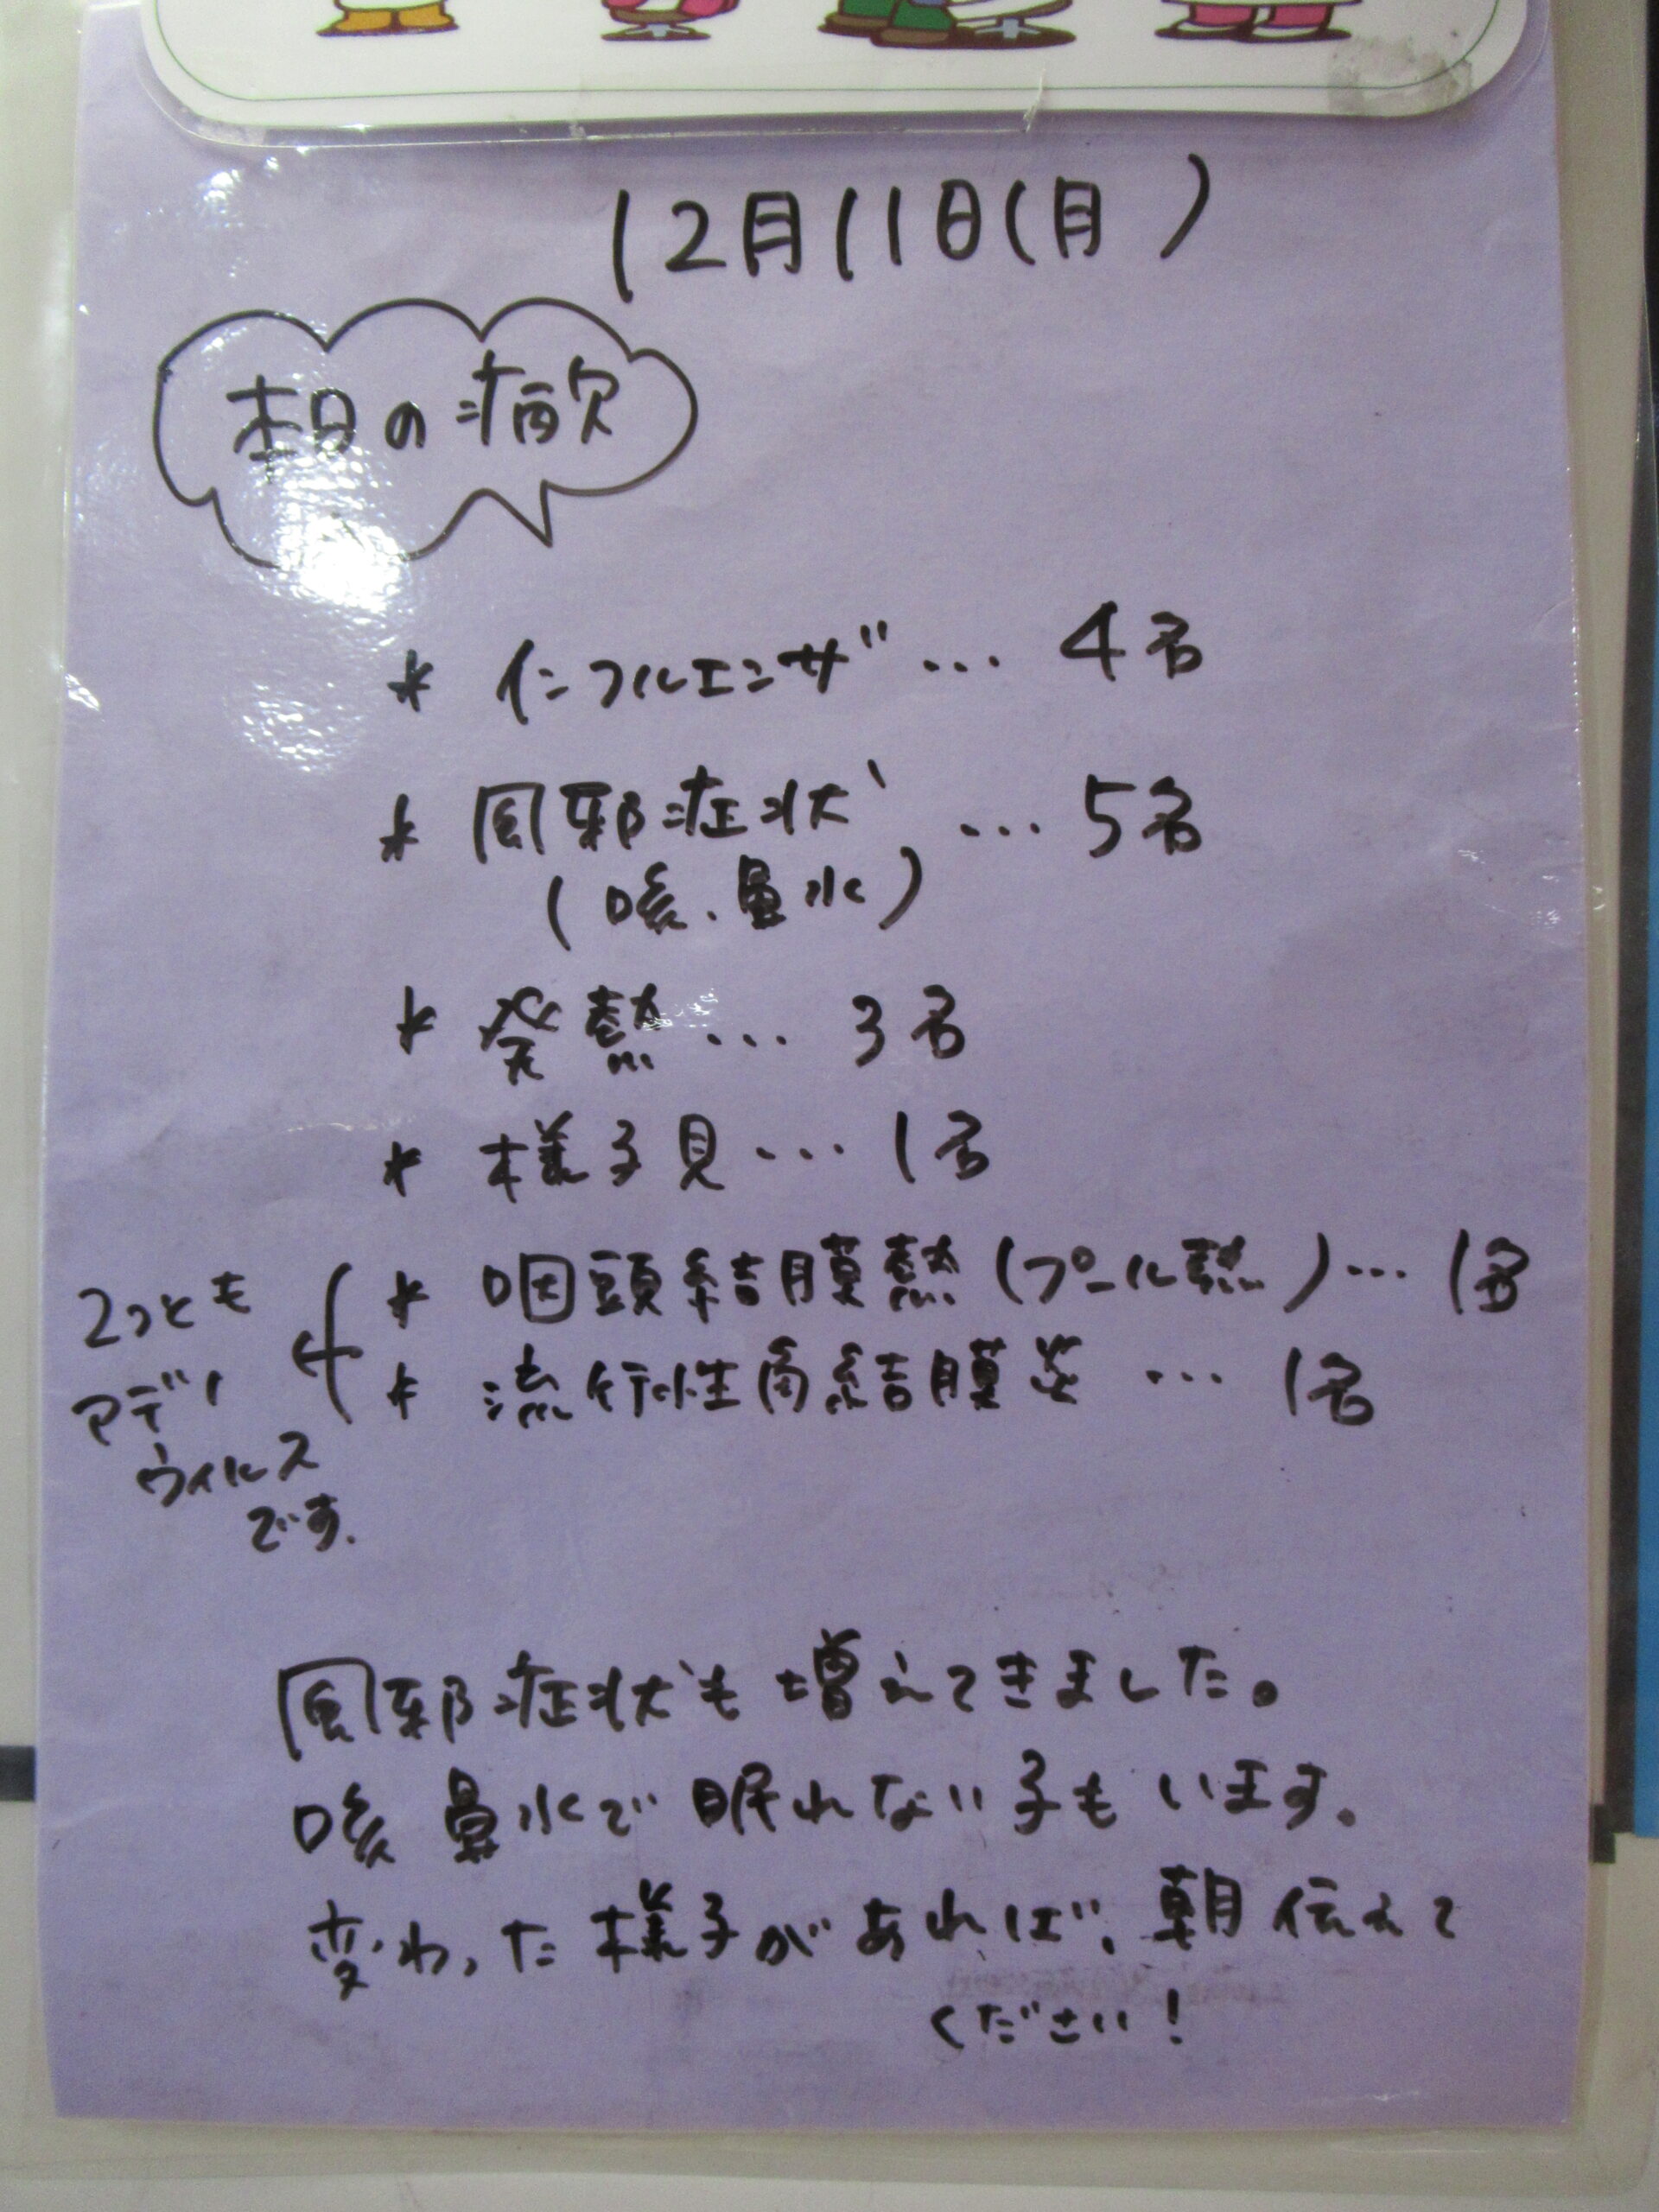 12月11日(月 )
本日の病欠
* インフルエンザ … 4名
* 風邪症状 … 5名
(咳、鼻水)
* 発熱 … 3名
* 様子見 … 1名
* 咽頭結膜熱(プール熱)… 1名
* 流行性角結膜炎 … 1名
2つとも
アデノ
ウィルス
です.
風邪症状も増えてきました。
咳 鼻水で眠れない子もいます。
変わった様子があれば、朝伝えて
ください!